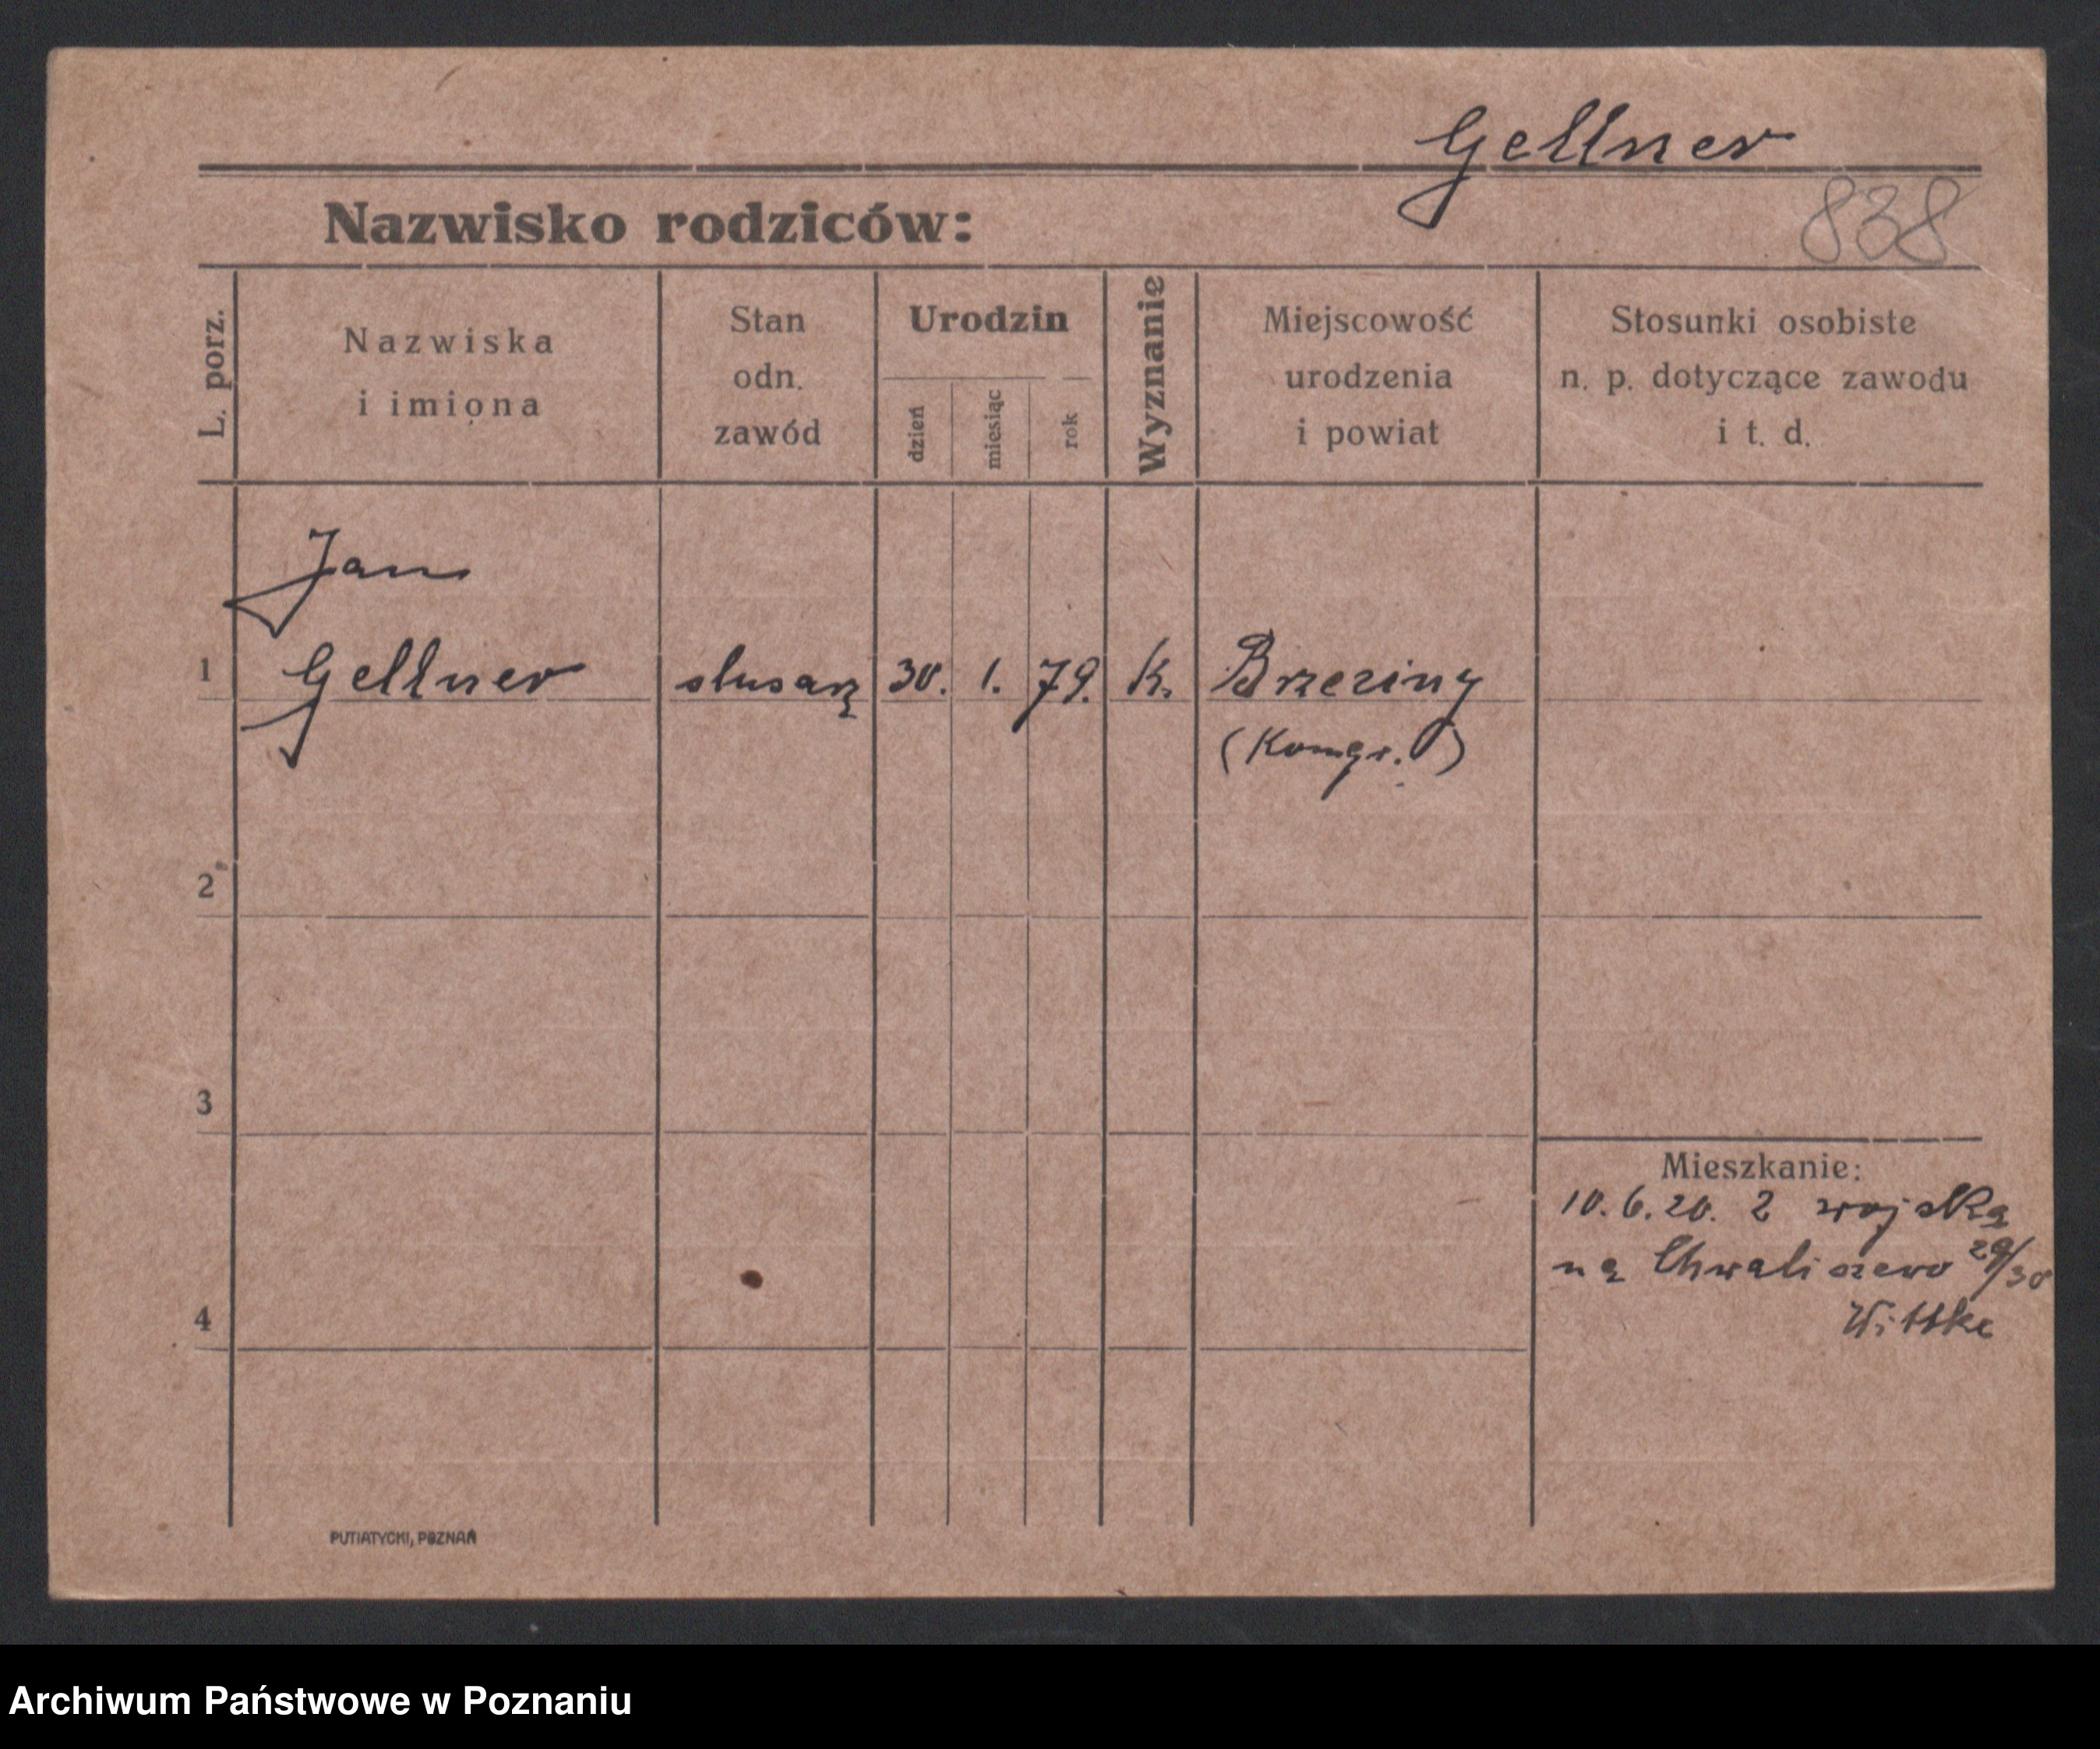 Gellner
838
Nazwisko rodziców:
L. porz.
Nazwiska
i imiona
Stan
odn.
zawód
Urodzin
dzień
miesiąc
rok
Wyznanie
Miejscowość
urodzenia
i powiat
Stosunki osobiste
n. p. dotyczące zawodu
i t. d.
Jan
1 Gellner slusarz 30. 1. 79. K. Brzeziny
(Kongr.)
2
3
4
Mieszkanie:
10.6.20. z wojska
na Chwaliszewo 29/30
Wittke
PUTIATYCKI, POZNAŃ
Archiwum Państwowe w Poznaniu